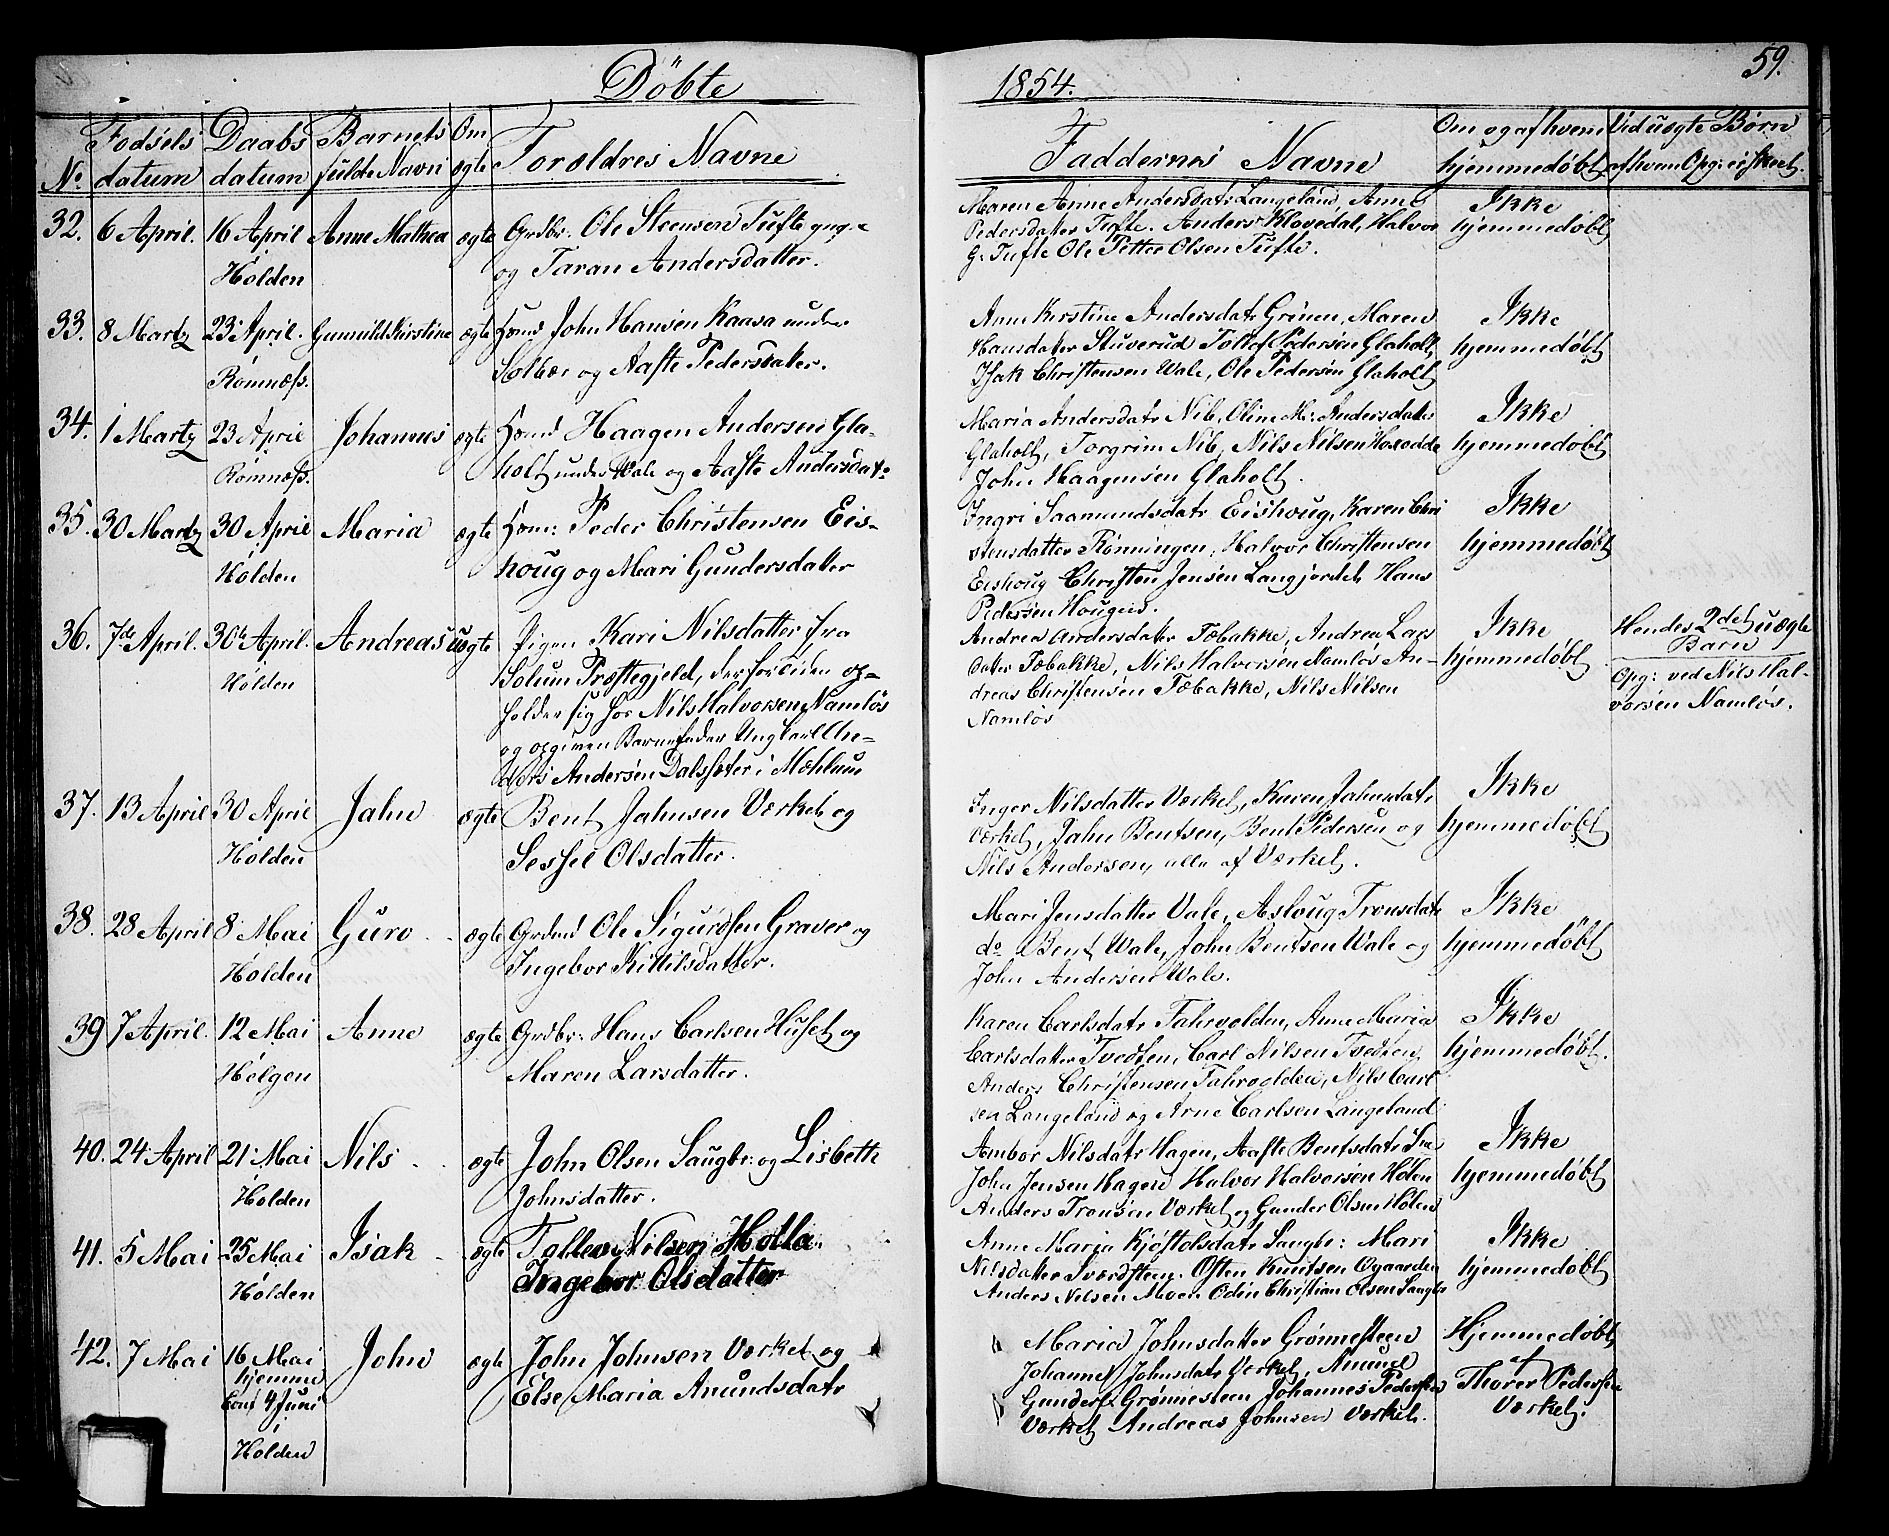 59.
Döbte 1854.
No. Fødsels datum Daabs datum Barnets fulde Navn Om ægte Forældres Navne Faddernes Navne Om og af hvem hjemmedøbt Ved uægte Børn af hvem Opg: er skeet.
32. 6 April. 16 April Holden Anne Mathea ægte Grdbr: Ole Steensen Tufte
og Taran Andersdatter.
Maren Anne Andersdatr Langeland, Anne
Pedersdatter Tufte. Anders Klovedal, Halvor
G. Tufte Ole Petter Olsen Tufte.
Ikke hjemmedøbt
33. 8 Martz 23 April. Romnæss. Gunnild Kirstine ægte Huusmd John Hansen Kaasa under
Solbær og Aaste Pedersdatter.
Anne Kirstine Andersdatr Grinen, Maren
Hansdatter Stuverud Tollof Pedersen Glaholt,
Isak Christensen Wale, Ole Pedersen Glaholt
Ikke hjemmedøbt
34. 1 Martz 23 April Romnæss. Johannes ægte Huusmd Haagen Andersen Gla-
holt under Wale og Aaste Andersdatr
Maria Andersdatr Nib, Oline M: Andersdatter
Glaholt, Torgrim Nib, Nils Nilsen Hoxodde
John Haagensen Glaholt.
Ikke hjemmedøbt
35. 30 Martz 30 April Holden Maria ægte Huusm: Peder Christensen Eis-
houg og Mari Gundersdatter
Ingri Saamundsdatr Eishoug, Karen Chri
stensdatter Rønningen, Halvor Christensen
Eishoug Christen Jensen Langjordet Hans
Pedersen Hougen.
Ikke hjemmedøbt
36. 7de April. 30te April. Holden Andreas uægte Pigen Kari Nilsdatter fra
Solum Præstegjeld, der for tiden op-
holder sig hos Nils Halvorsen Namløs
og opgiven Barnefader Ungkarl An-
ders Andersen Dalsæter i Mæhlum
Andrea Andersdatter Tæbakke, Andrea Lars
datter Tæbakke, Nils Halvorsen Namløs An-
dreas Christensen Tæbakke, Nils Nilsen
Namløs
Ikke hjemmedøbt
Hendes 2det uægte
Barn
Opg: ved Nils Hal-
vorsen Namløs.
37. 13 April 30 April Holden Jahn ægte Bent Jahnsen Værket og
Sessel Olsdatter.
Inger Nilsdatter Værket, Karen Jahnsdatr
Værket, Jahn Bentsen, Bent Pedersen og
Nils Andersen, alle af Værket.
Ikke hjemmedøbt
38. 28 April 8 Mai Holden Guro ægte Grdmd Ole Sigurdsen Graver og
Ingebor Kittilsdatter.
Mari Jensdatter Vale, Asloug Tronsdatr
do Bent Wale, John Bentsen Wale og
John Andersen Wale.
Ikke hjemmedøbt
39 7 April. 12 Mai Helgen Anne ægte Grdbr: Hans Carlsen Huset og
Maren Larsdatter.
Karen Carlsdatr Fahrvolden, Anne Maria
Carlsdatter Tvedten, Carl Nilsen Tvedten,
Anders Christensen Fahrvolden, Nils Carl
sen Langeland og Arne Carlsen Langeland
Ikke hjemmedøbt.
40. 24 April 21 Mai Holden Nils ægte John Olsen Saugbr: og Lisbeth
Johnsdatter.
Ambor Nilsdatr Hagen, Aaste Bentsdatr
John Jensen Hagen Halvor Halvorsen Holen
Anders Tronsen Værket og Gunder Olsen Holens
Ikke hjemmedøbt
41. 5 Mai 25 Mai Holden Isak ægte Tallev Nilsen Holla
Ingebor Olsdatter
Anne Maria Kjøstolsdatr Saugbr: Mari
Nilsdatter Sværdsteen. Osten Knutsen Ovgaarden
Anders Nilsen Moen Odin Christian Olsen Saugbr
Ikke hjemmedøbt
42. 7 Mai 16 Mai hjemme Conf 4 Juni i Holden John ægte John Johnsen Værket og
Else Maria Amundsdatr
Maria Johnsdatter Grønnesteen
Johanne Johnsdatr Værket, Amund
Gunders. Grønnesteen Johannes Pedersen
Værket Andreas Johnsen Værket.
Hjemmedøbt
af
Thorer Pedersen
Værket.